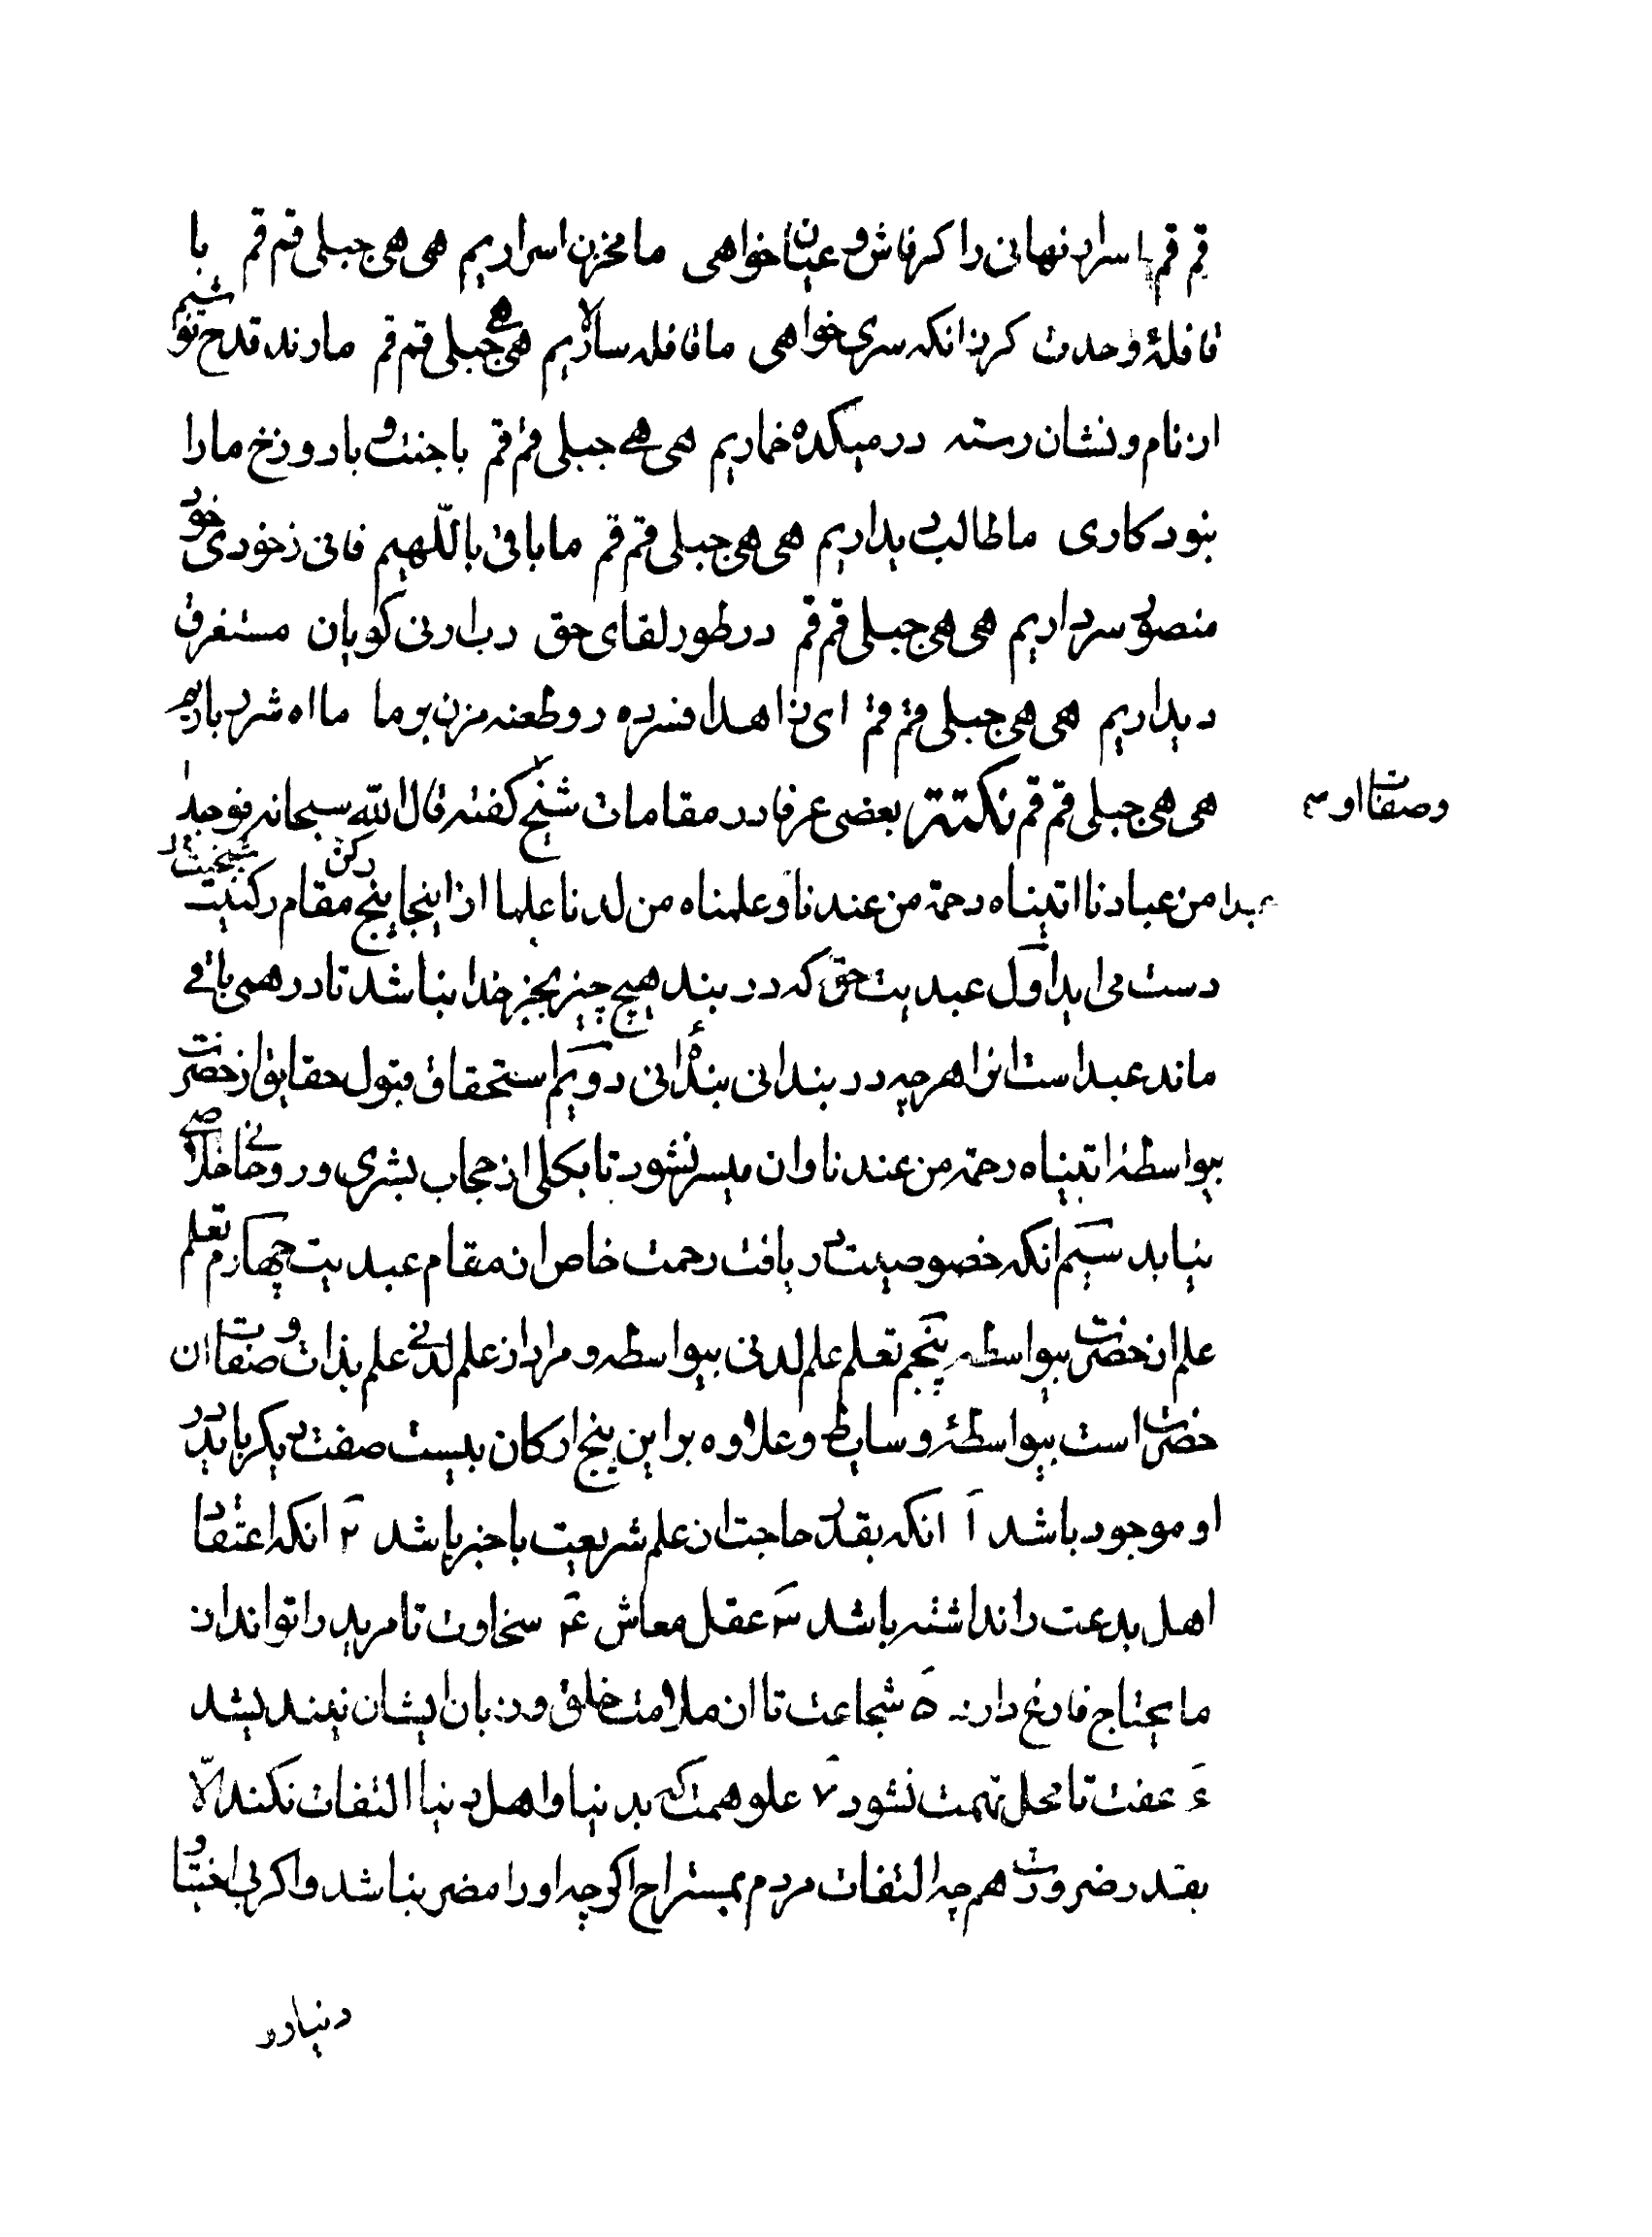 قم قم اسرار نهانی را کر فاش و عیان خواهی ما مخزن اسراریم هی هی جبلی قم قم با
قافلهٔ وحدت کر زانکه سری خواهی ما قافله سالاریم هی هی جبلی قم قم ما رند قدح نوشیم
از نام و نشان رسته در میکده خماریم هی هی جبلی قم قم با جنت و با دوزخ ما را
نبود کاری ما طالب دیداریم هی هی جبلی قم قم ما باقی باللهیم فانی ز خودی خود
منصور سرداریم هی هی جبلی قم قم در طور لقای حق رب ارنی کویان مستغرق
دیداریم هی هی جبلی قم قم ای زاهد افسرده رو طعنه مزن بر ما ما اه شرر باریم
هی هی جبلی قم قم نکتة بعضی عرفا در مقامات شیخ کفته قال الله سبحانه فوجدا
عبدا من عبادنا اتیناه رحمة من عندنا و علمناه من لدنا علما از اینجا پنج مقام رکن شیخیت
دست می اید اول عبدیت حق که در بند هیچ چیز بجز خدا نباشد تا درهمی باقی
ماند عبد است انرا هر چه در بند انی بندهٔ انی دویم استحقاق قبول حقایق از حضرت
بیواسطهٔ اتیناه رحمة من عندنا و ان میسر نشود تا بکلی از حجاب بشری و روحانی خلاصی
نیابد سیم انکه خصوصیت دریافت رحمت خاص از مقام عبدیت چهارم تعلم
علم از حضرت بیواسطه پنجم تعلم علم لدنی بیواسطه و مراد از علم لدنی علم بذات و صفات ان
حضرت است بیواسطهٔ وسایط و علاوه بر این پنج ارکان بیست صفت دیکر باید در
او موجود باشد ۱ انکه بقدر حاجت از علم شریعت با خبر باشد ۲ انکه اعتقاد
اهل بدعت را نداشته باشد ۳ عقل معاش ۴ سخاوت تا مرید را تواند از
ما یحتاج فارغ دارد ۵ شجاعت تا از ملامت خلق و زبان ایشان نیندیشد
۶ عفت تا محل تهمت نشود ۷ علو همت که بدنیا و اهل دنیا التفات نکند الا
بقدر ضرورت هم چه التفات مردم بمستراح اکر چه او را مضر نباشد و اکر بی اختیار
دنیا در
و صفات او